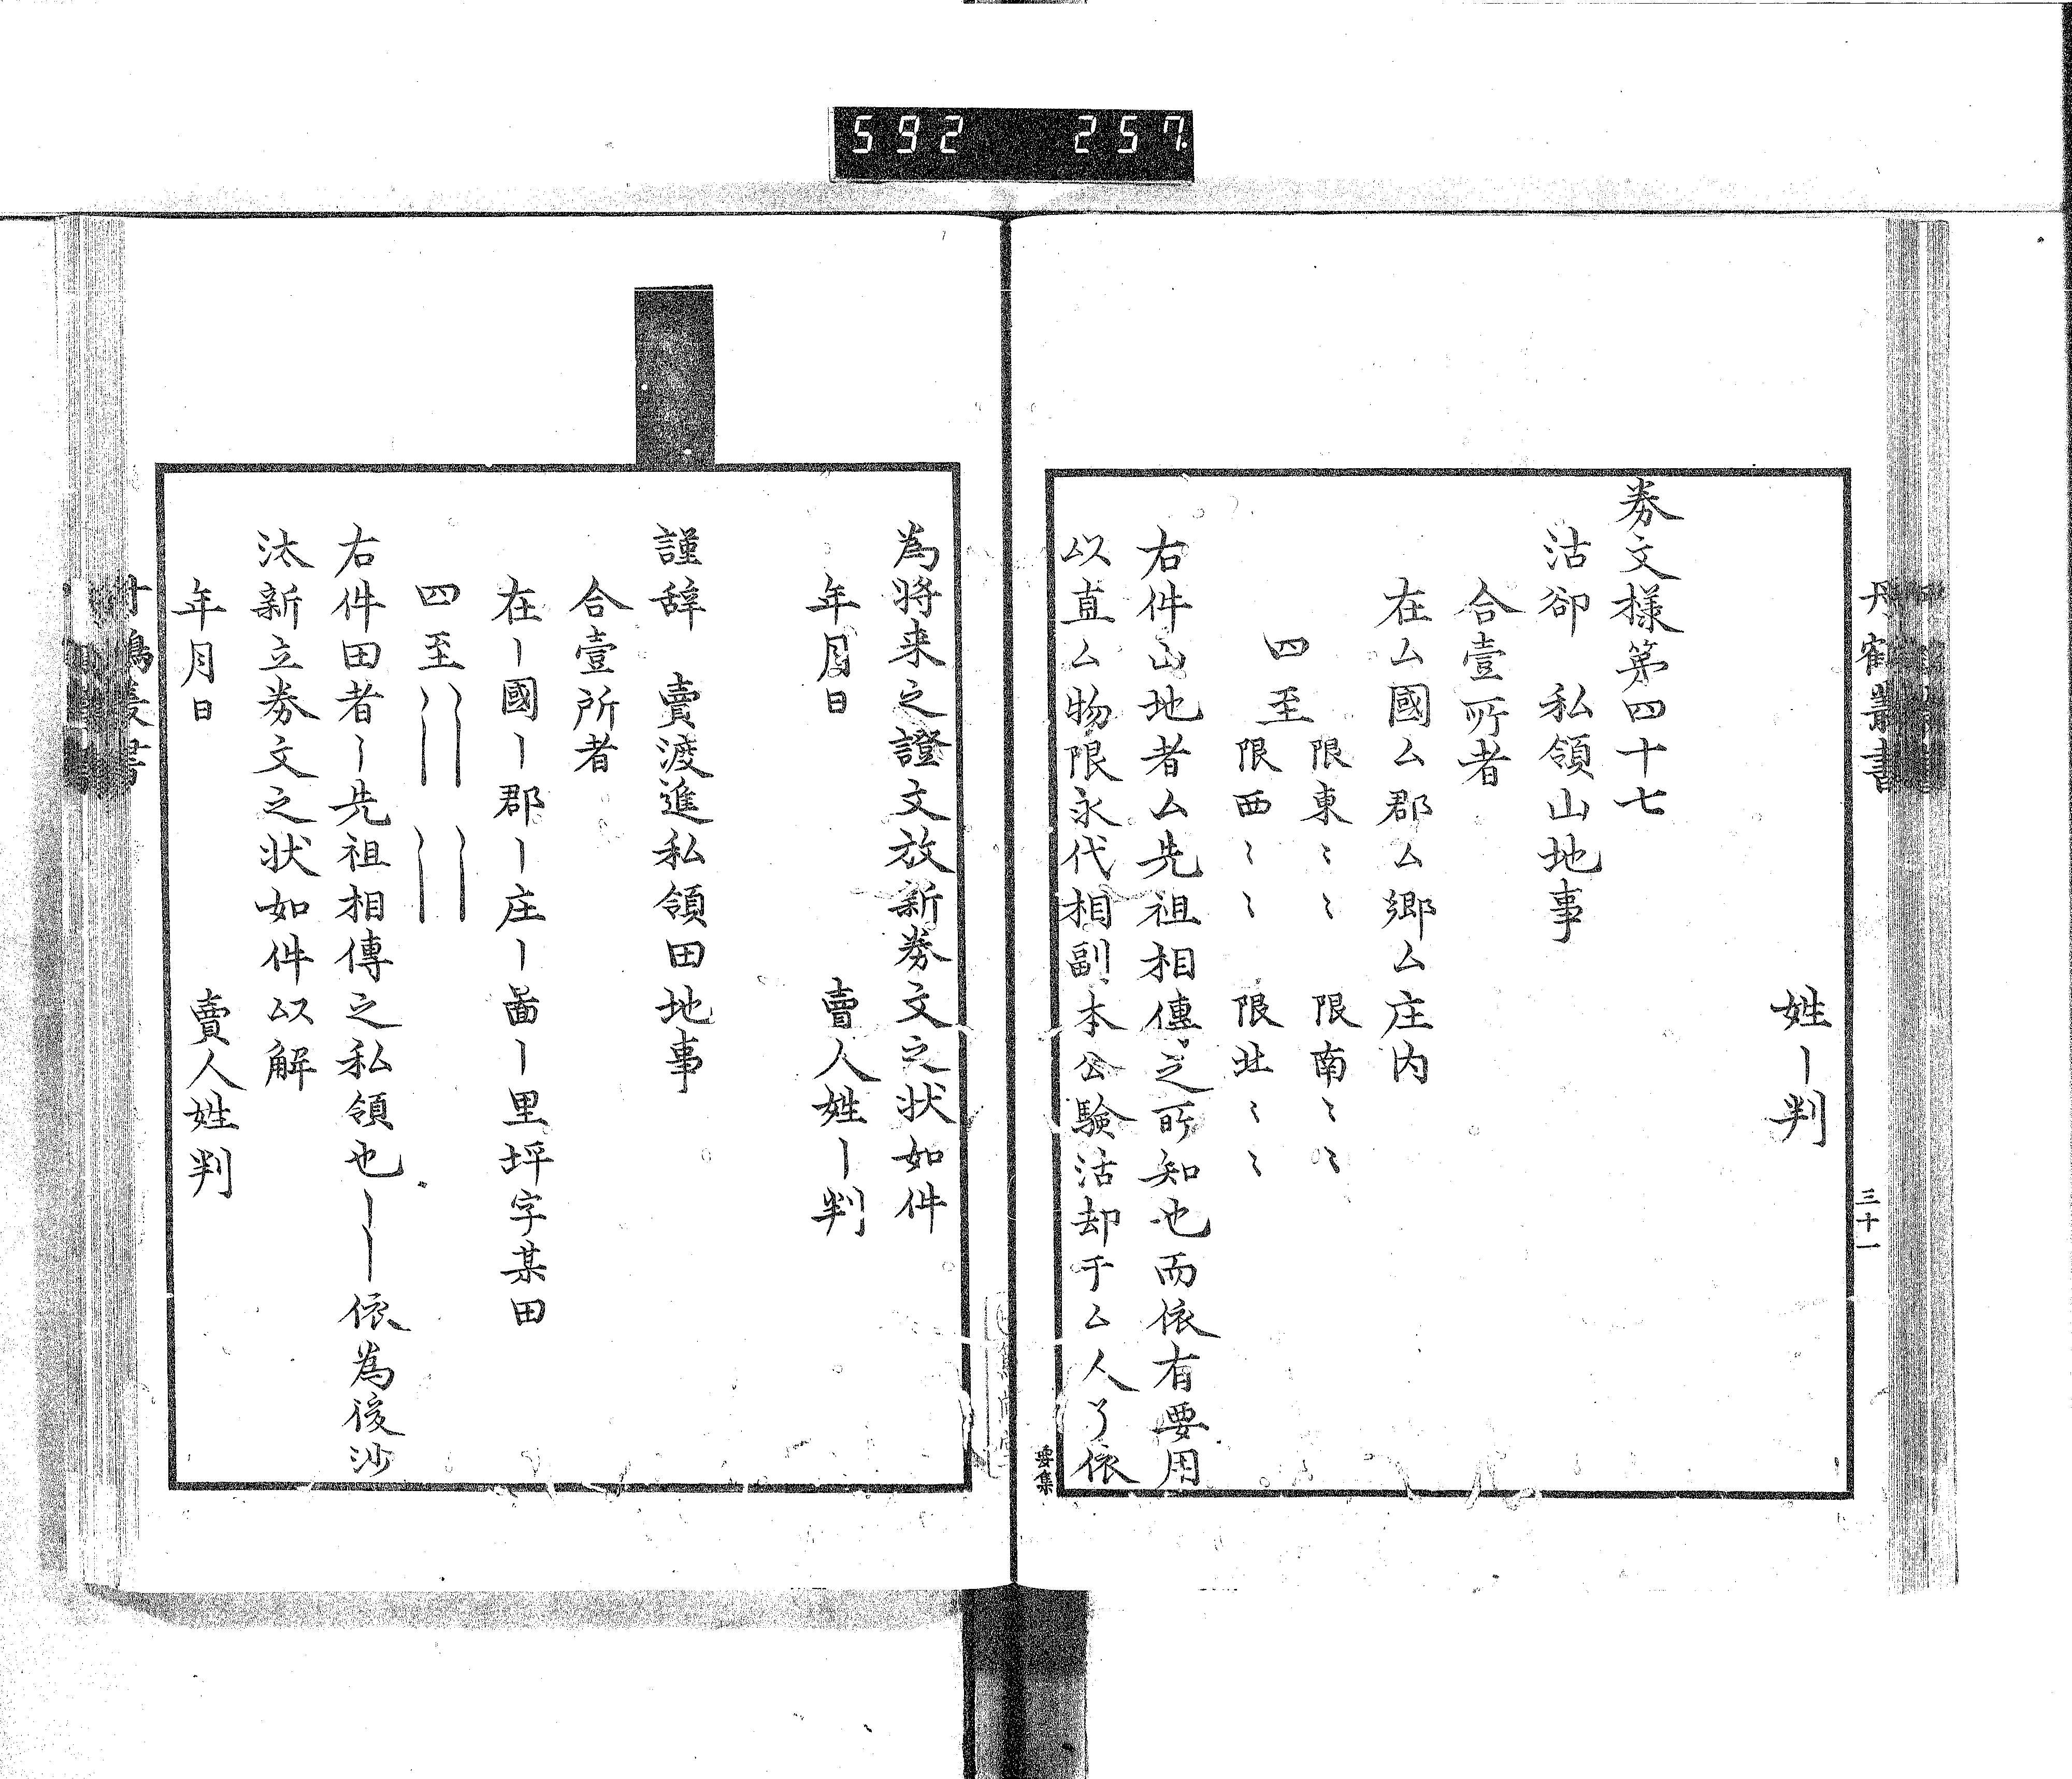 592 257.
丹鶴叢書
三十一
姓ー判
券文様第四十七
沽却 私領山地事
合壹所者
在ム國ム郡ム郷ム庄内
四至
限東〻〻 限南〻〻
限西〻〻 限北〻〻
右件山地者ム先祖相傳之所知也而依有要用
以直ム物限永代相副本公驗沽却于ム人了依
要集
為將来之證文放新券文之状如件
年月日 賣人姓ー判
謹辞 賣渡進私領田地事
合壹所者
在ー國ー郡ー庄ー啚ー里坪字某田
四至
右件田者ー先祖相傳之私領也ーー依為後沙
汰新立券文之状如件以解
年月日 賣人姓判